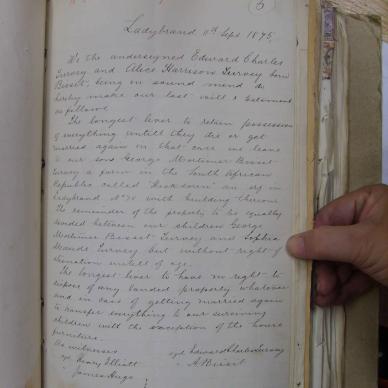 6
Ladybrand 11th Sept 1895
We the undersigned Edward Charles
Survey and Alice Harrison Survey born
Bisset, being in sound mind do
hereby make our last will & testament
as follows
The longest liver to retain possession
of everything untill they die or get
married again in that case we leave
to our son George Mortimer Bisset
Survey a farm in the South African
Republic called an erf in
Ladybrand No with building thereon
The remainder of the property to be equally
divided between our children George
Mortimer Bisset Survey and Sophia
Maude Survey but without right of
alienation untill of age.
The longest liver to have no right to
dispose of any landed property whatever
and in case of getting married again
to transfer everything to our surviving
children with the exception of the house
furniture.
As witnesses
Henry Elliott Edward Charles Survey
James Hugo A Bisset